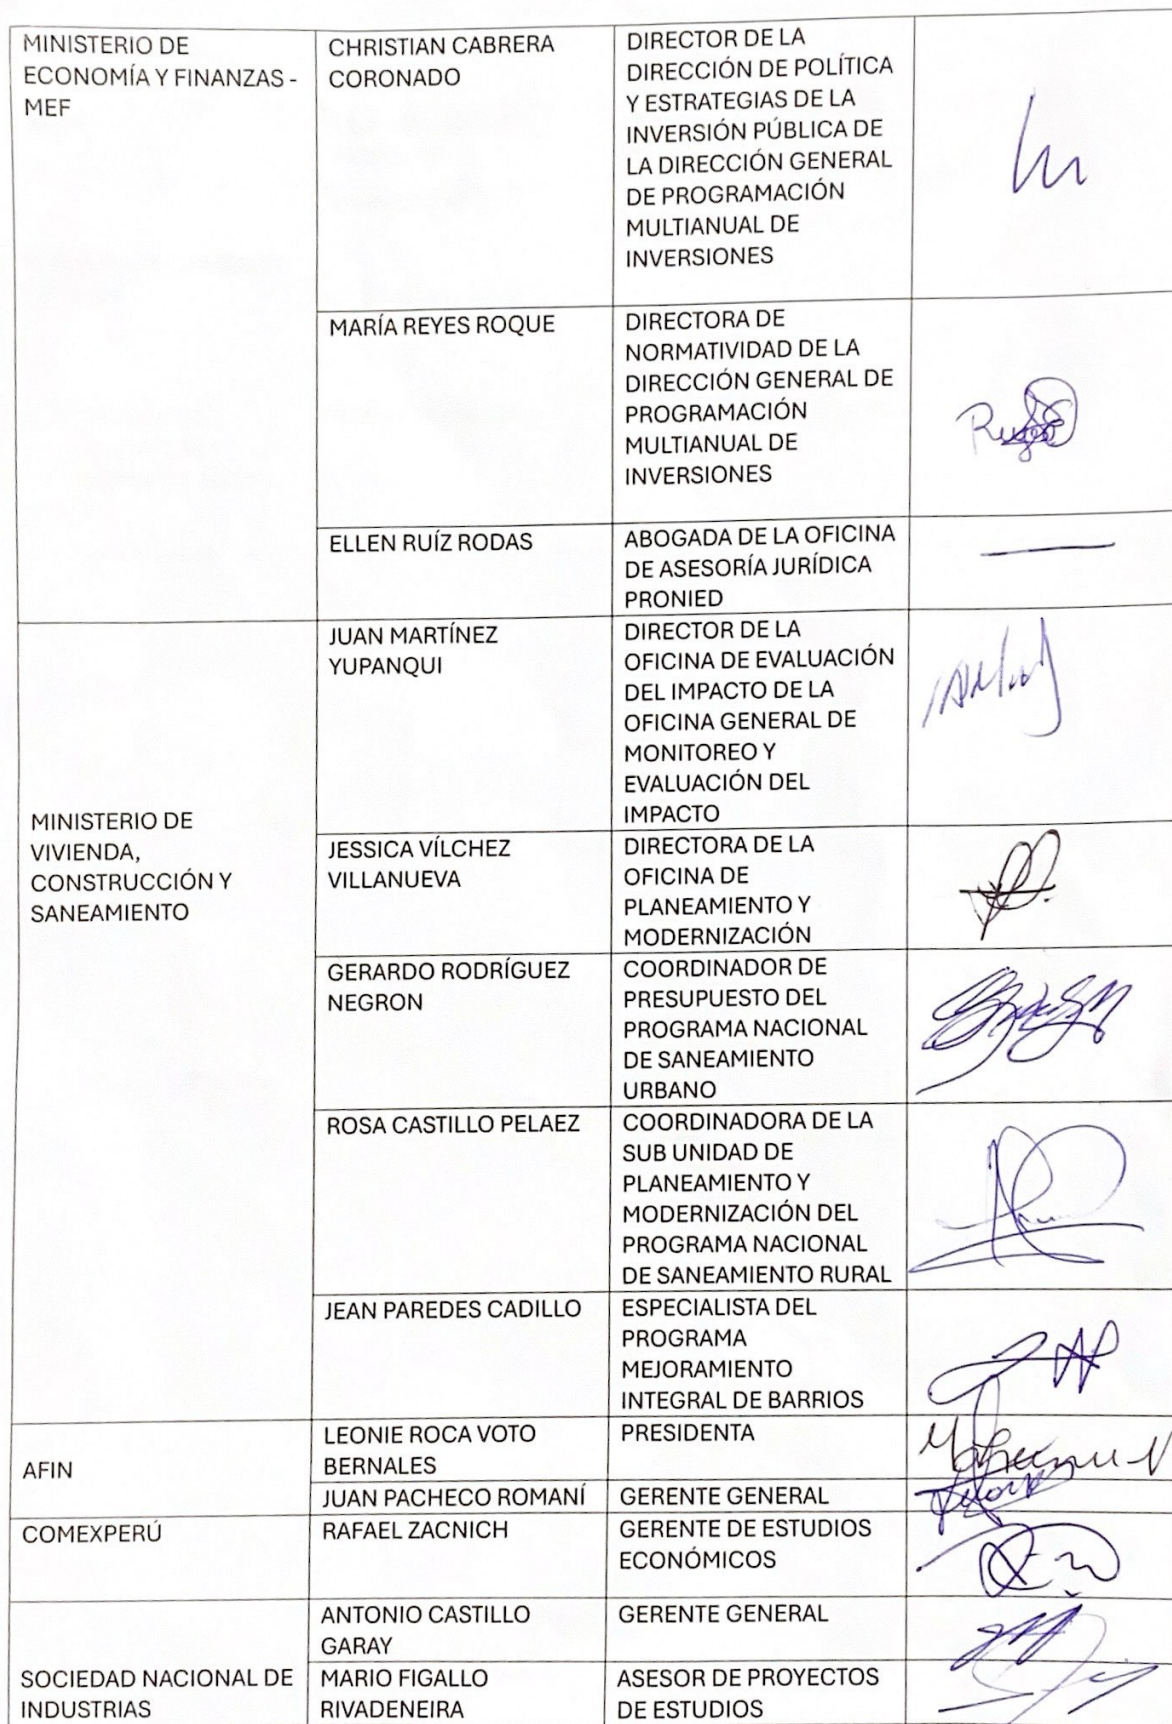 MINISTERIO DE
ECONOMÍA Y FINANZAS -
MEF
CHRISTIAN CABRERA
CORONADO
DIRECTOR DE LA
DIRECCIÓN DE POLÍTICA
Y ESTRATEGIAS DE LA
INVERSIÓN PÚBLICA DE
LA DIRECCIÓN GENERAL
DE PROGRAMACIÓN
MULTIANUAL DE
INVERSIONES
MARÍA REYES ROQUE
DIRECTORA DE
NORMATIVIDAD DE LA
DIRECCIÓN GENERAL DE
PROGRAMACIÓN
MULTIANUAL DE
INVERSIONES
ELLEN RUÍZ RODAS
ABOGADA DE LA OFICINA
DE ASESORÍA JURÍDICA
PRONIED
MINISTERIO DE
VIVIENDA,
CONSTRUCCIÓN Y
SANEAMIENTO
JUAN MARTÍNEZ
YUPANQUI
DIRECTOR DE LA
OFICINA DE EVALUACIÓN
DEL IMPACTO DE LA
OFICINA GENERAL DE
MONITOREO Y
EVALUACIÓN DEL
IMPACTO
JESSICA VÍLCHEZ
VILLANUEVA
DIRECTORA DE LA
OFICINA DE
PLANEAMIENTO Y
MODERNIZACIÓN
GERARDO RODRÍGUEZ
NEGRON
COORDINADOR DE
PRESUPUESTO DEL
PROGRAMA NACIONAL
DE SANEAMIENTO
URBANO
ROSA CASTILLO PELAEZ
COORDINADORA DE LA
SUB UNIDAD DE
PLANEAMIENTO Y
MODERNIZACIÓN DEL
PROGRAMA NACIONAL
DE SANEAMIENTO RURAL
JEAN PAREDES CADILLO
ESPECIALISTA DEL
PROGRAMA
MEJORAMIENTO
INTEGRAL DE BARRIOS
AFIN
LEONIE ROCA VOTO
BERNALES
PRESIDENTA
JUAN PACHECO ROMANÍ
GERENTE GENERAL
COMEXPERÚ
RAFAEL ZACNICH
GERENTE DE ESTUDIOS
ECONÓMICOS
SOCIEDAD NACIONAL DE
INDUSTRIAS
ANTONIO CASTILLO
GARAY
GERENTE GENERAL
MARIO FIGALLO
RIVADENEIRA
ASESOR DE PROYECTOS
DE ESTUDIOS